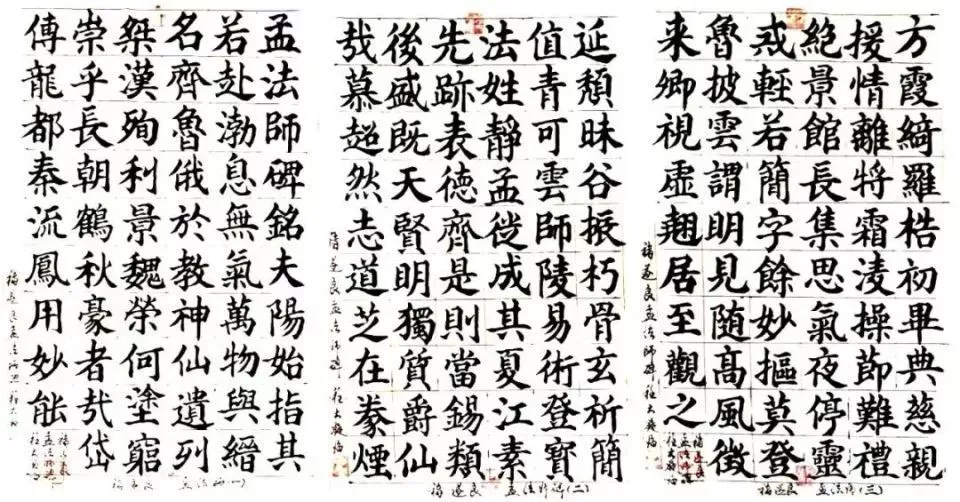 孟法師碑銘夫陽始指其
若赴渤息無氣萬物與縉
名齊魯俄於教神仙遺列
桀漢殉利景魏榮何塗窮
崇乎長朝鶴秋豪者哉岱
傳龍都秦流鳳用妙能
褚遂良孟法師碑
褚遂良 孟法師碑(一)
延頹昧谷振朽骨玄祈簡
值青可雲師陵易術登寶
法姓靜孟從成其夏江素
先跡表德齊是則當錫類
後盛既天賢明獨質爵仙
哉慕超然志道芝在豢煙
褚遂良孟法師碑
褚遂良 孟法師碑(二)
方霞綺羅梏初畢典慈親
援情離將霜淩操節難禮
絕景館長集思氣夜停靈
戒輕若簡字餘妙摳莫登
魯披雲謂明見随高風徵
来卿視虛翹居至觀之
褚遂良孟法師碑
褚遂良 孟法師碑(三)